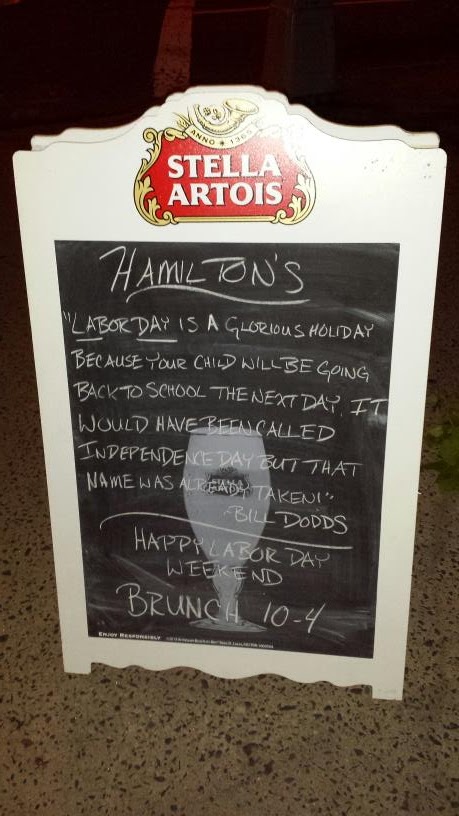 ANNO * 1366
STELLA
ARTOIS
HAMILTON'S
"LABOR DAY IS A GLORIOUS HOLIDAY
BECAUSE YOUR CHILD WILL BE GOING
BACK TO SCHOOL THE NEXT DAY. IT
WOULD HAVE BEEN CALLED
INDEPENDENCE DAY BUT THAT
NAME WAS ALREADY TAKEN!"
-BILL DODDS
HAPPY LABOR DAY
WEEKEND
BRUNCH 10-4
ENJOY RESPONSIBLY